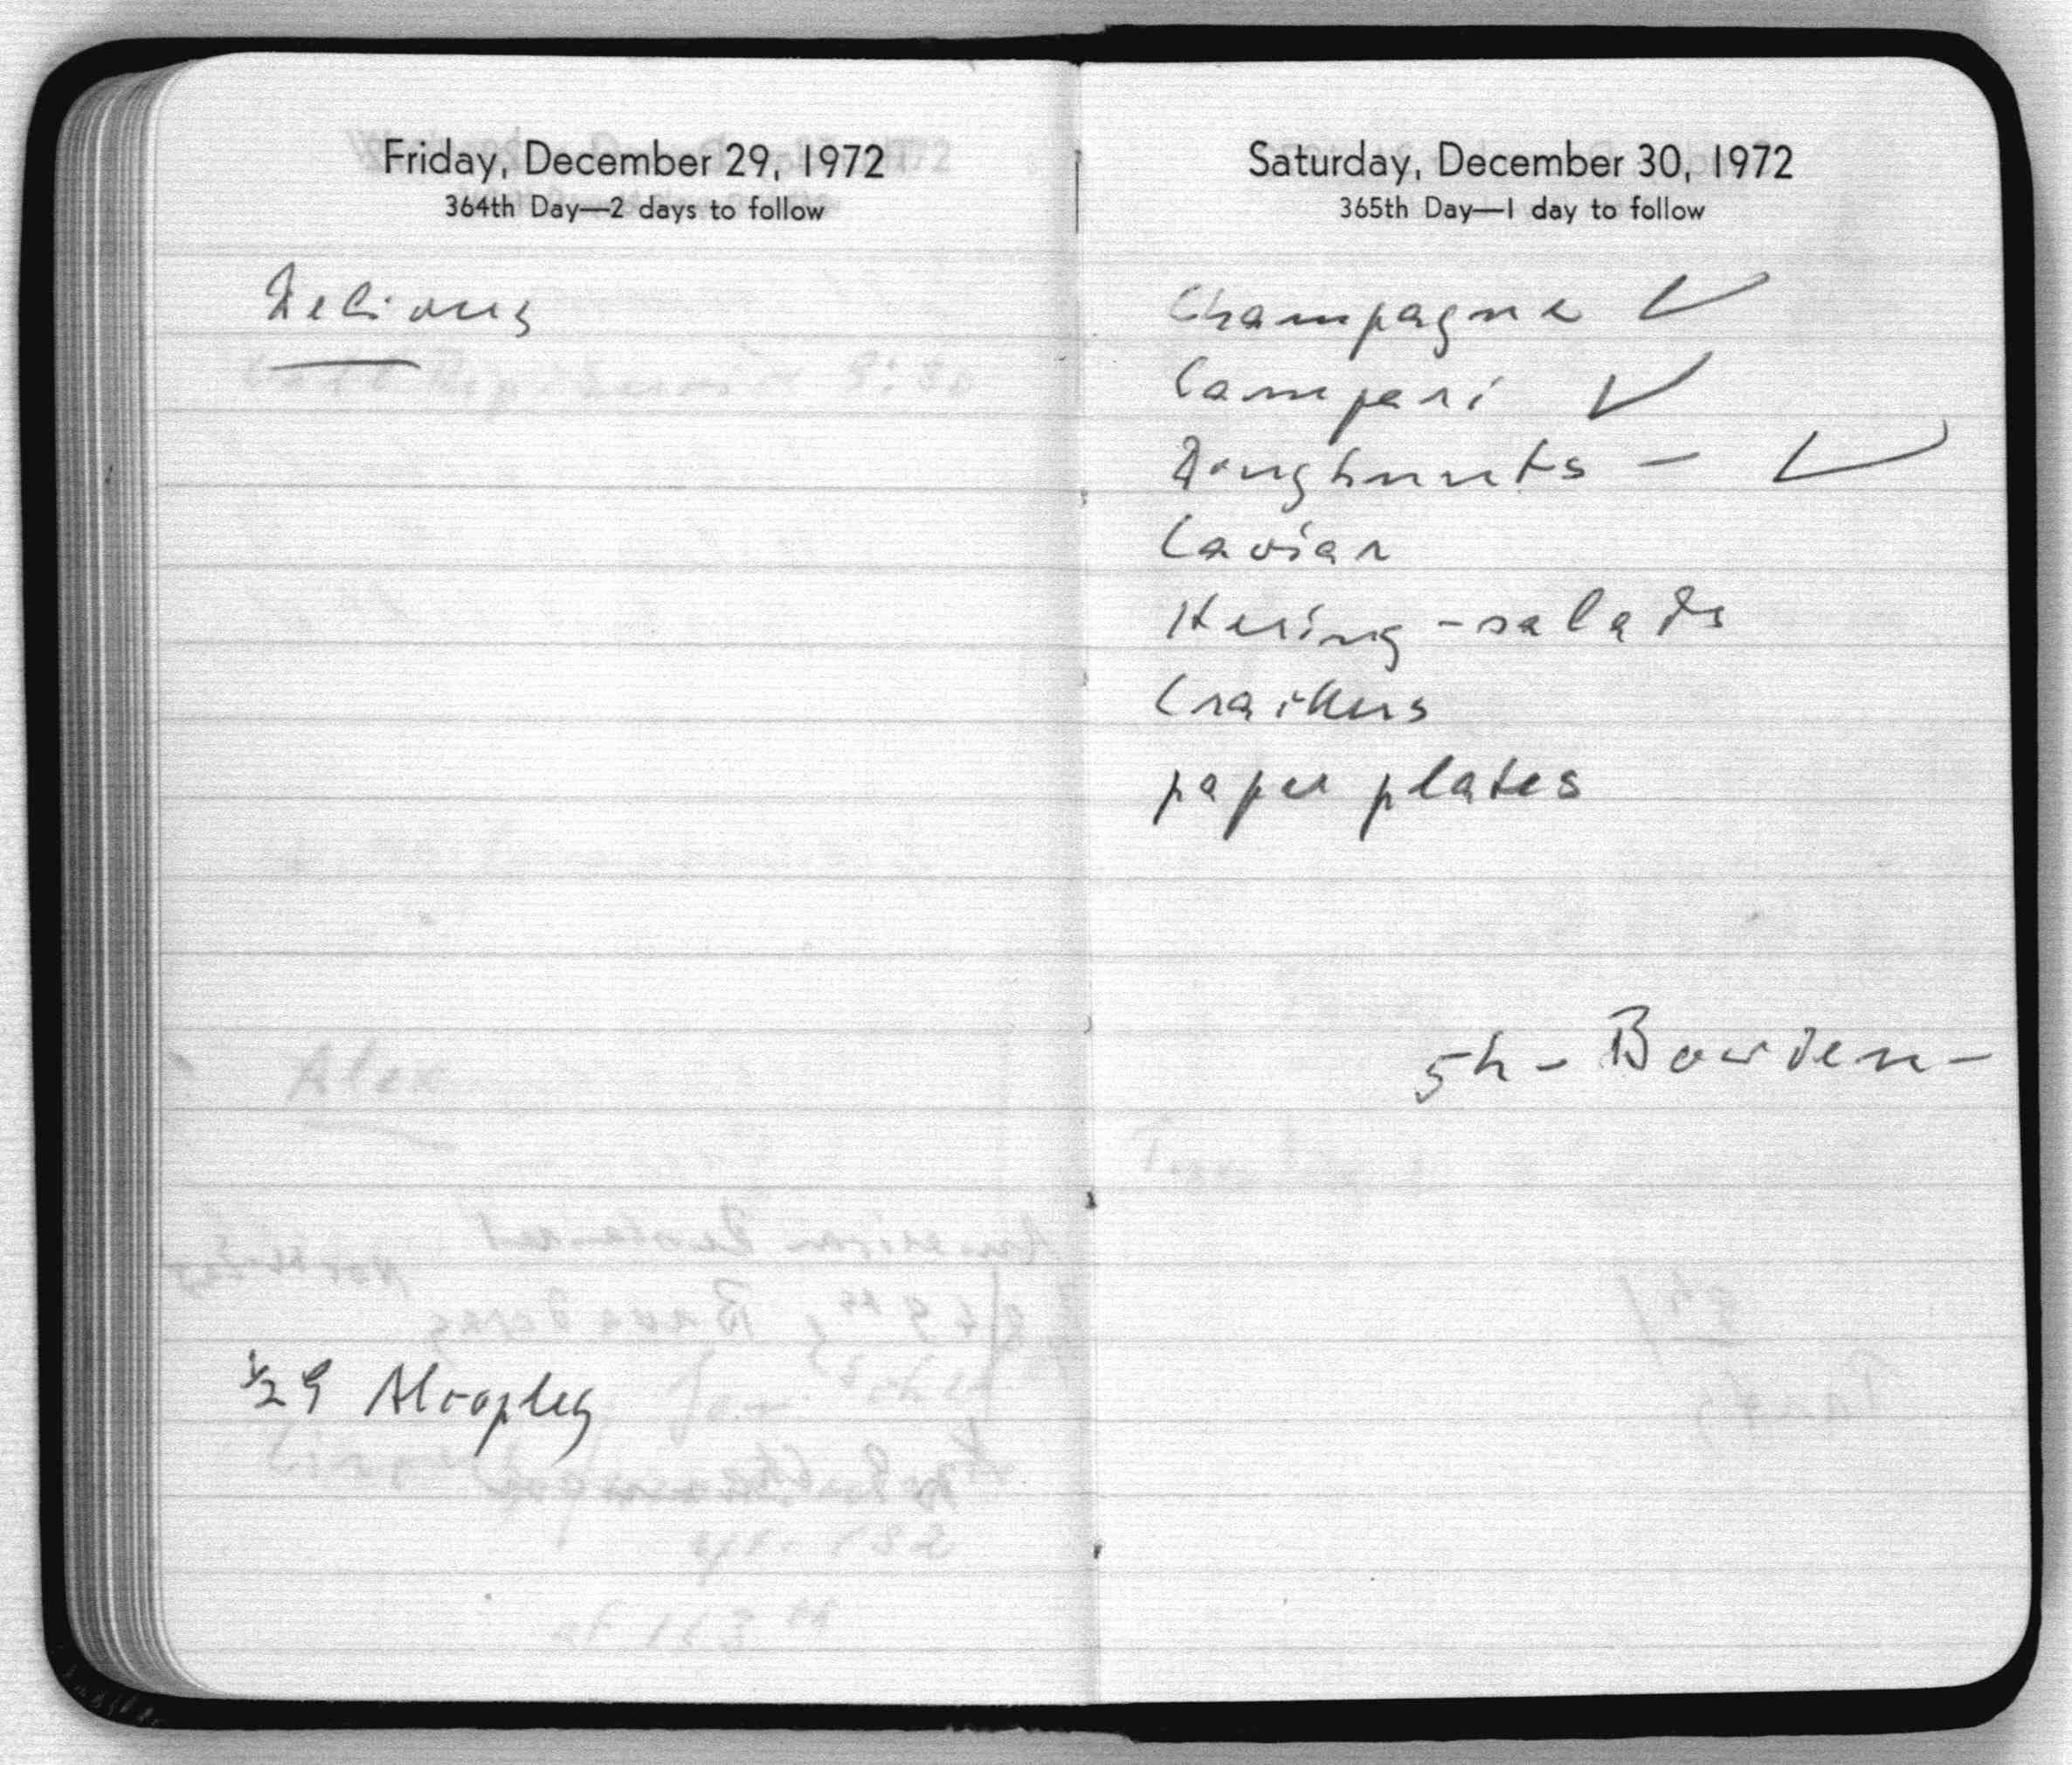 Friday, December 29, 1972
364th Day—2 days to follow
½ 9
Saturday, December 30, 1972
365th Day—1 day to follow
Champagne ✓
Campari ✓
Doughnuts — ✓
Caviar
Hering - salads
Craikers
paper plates
5h - Bowden -